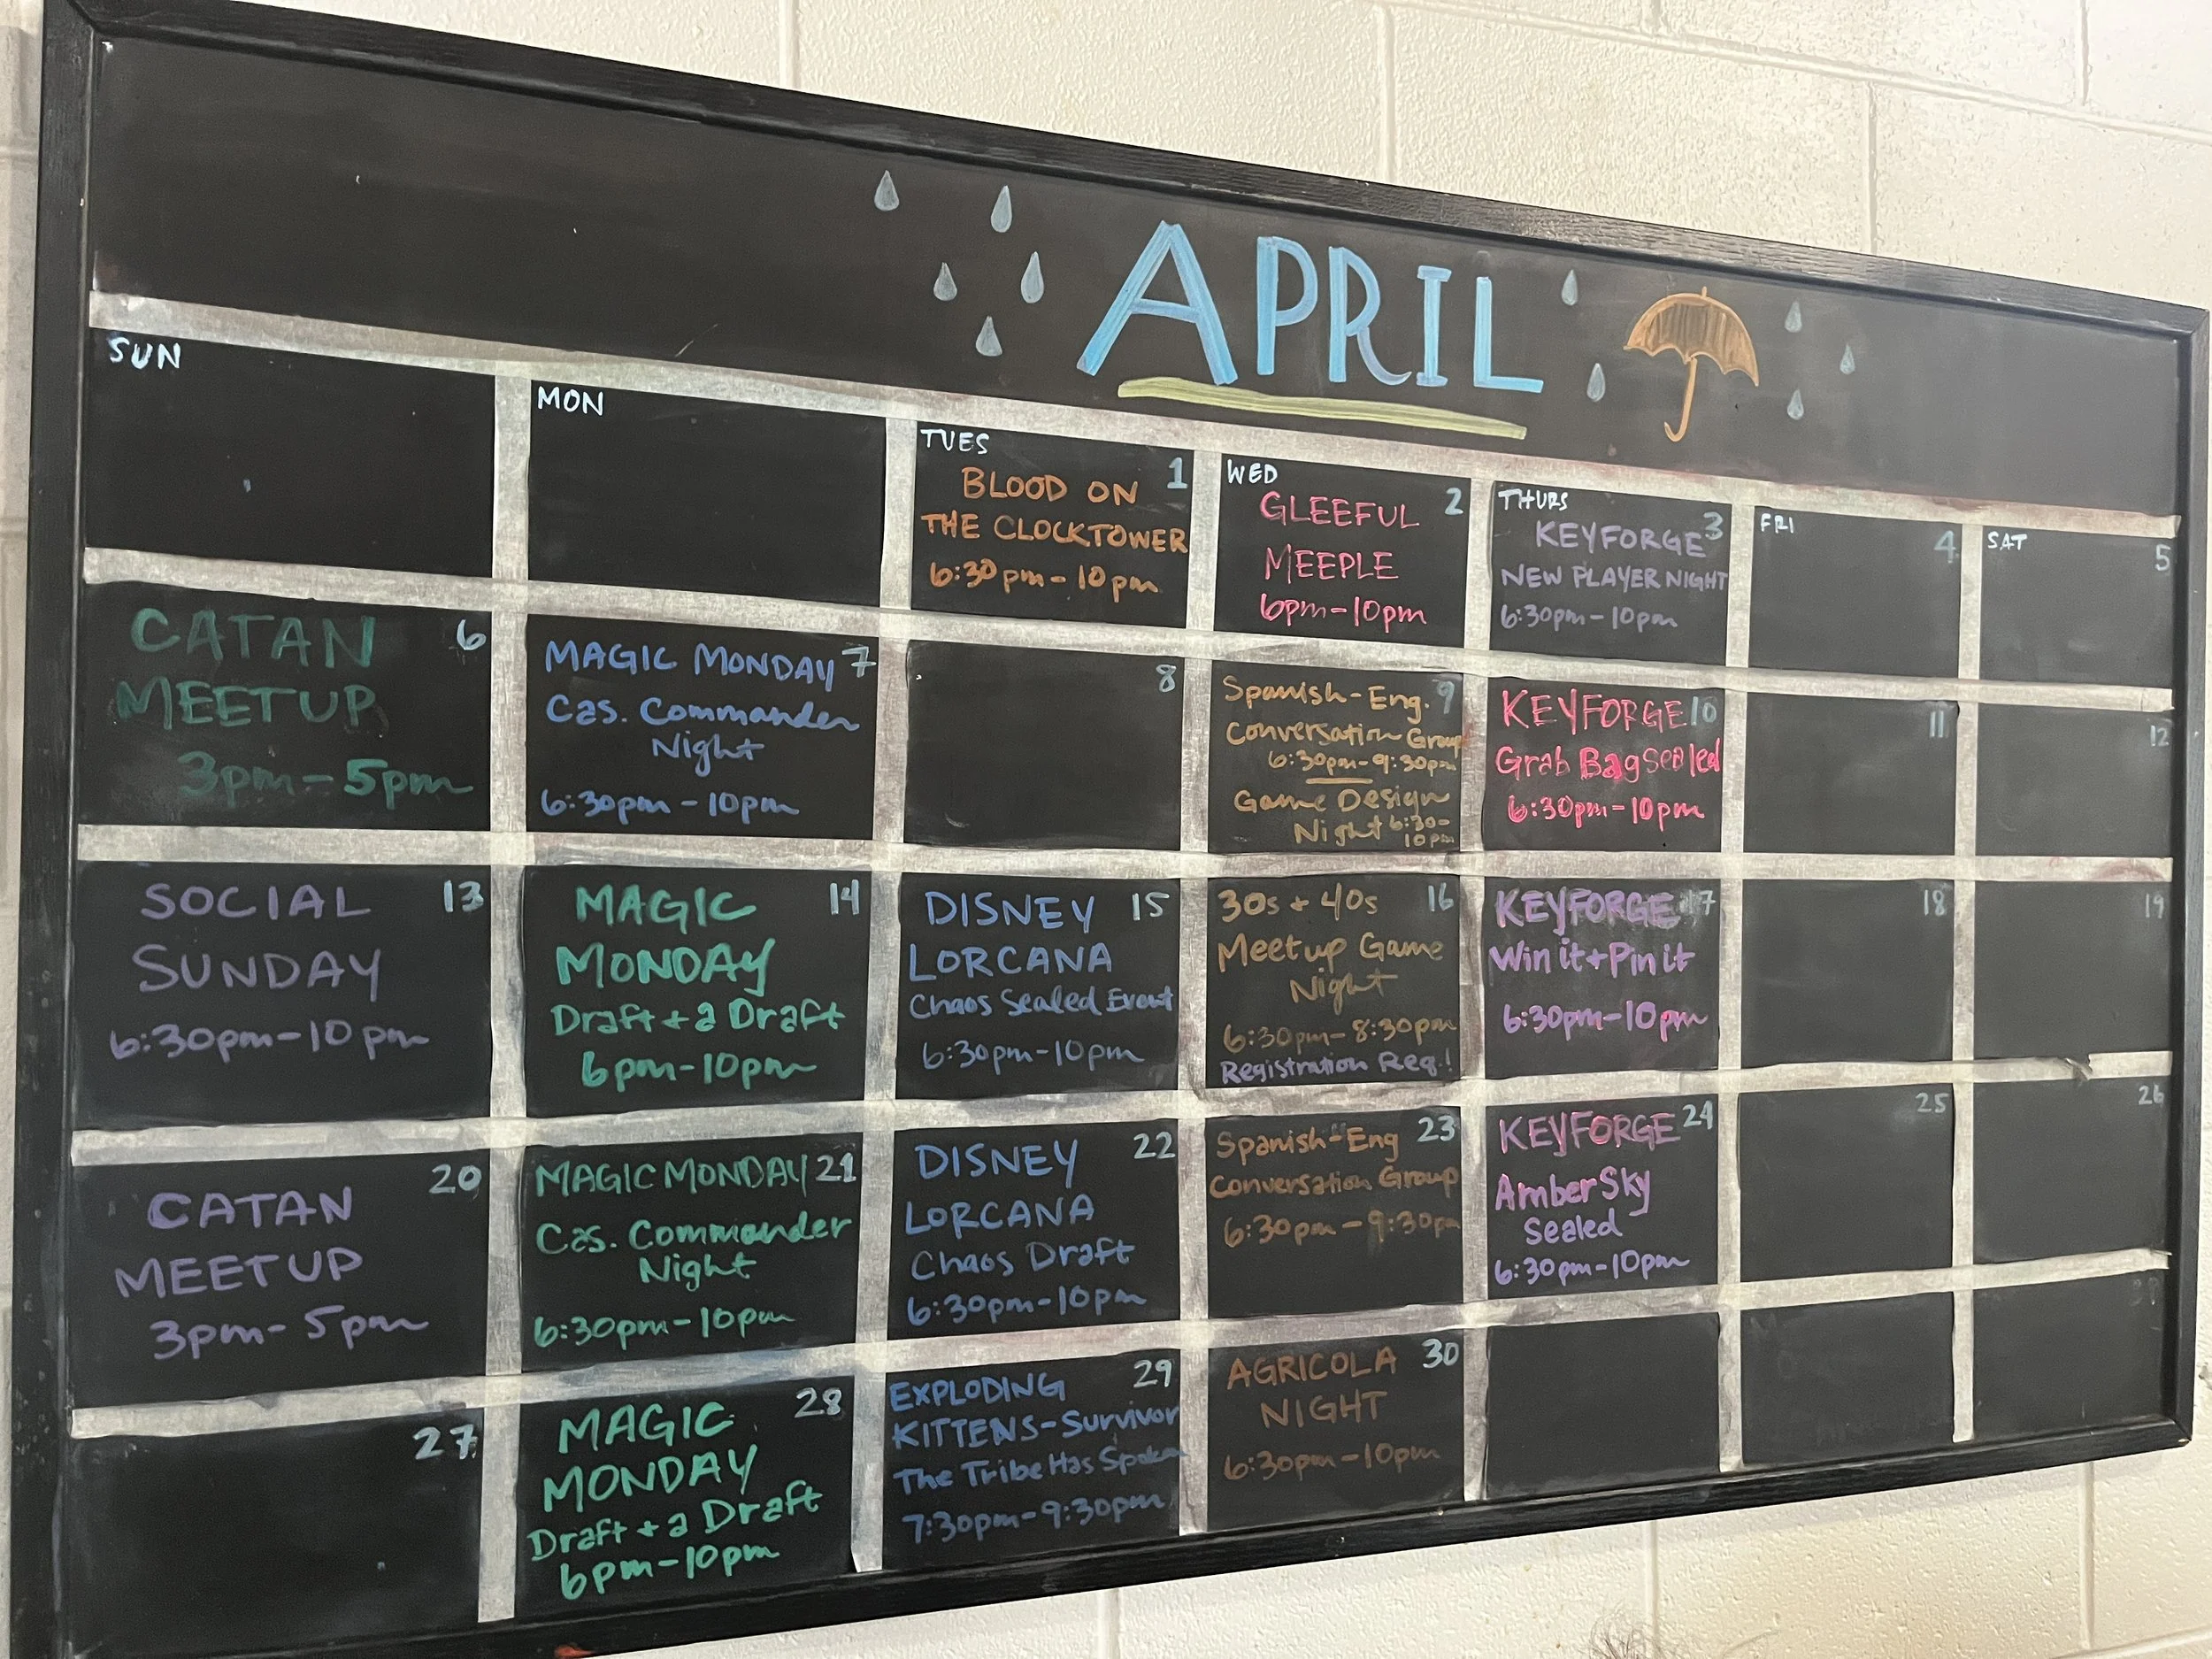 APRIL
SUN
MON
TUES
1
BLOOD ON
THE CLOCKTOWER
6:30pm-10pm
WED
2
GLEEFUL
MEEPLE
6pm-10pm
THURS
3
KEYFORGE
NEW PLAYER NIGHT
6:30pm-10pm
FRI
4
SAT
5
6
CATAN
MEETUP
3pm-5pm
MAGIC MONDAY 7
Cas. Commander
Night
6:30pm-10pm
8
Spanish-Eng. 9
Conversation Group
6:30pm-9:30pm
Game Design
Night 6:30-
10pm
KEYFORGE 10
Grab Bag Sealed
6:30pm-10pm
11
12
SOCIAL 13
SUNDAY
6:30pm-10pm
MAGIC 14
MONDAY
Draft + a Draft
6pm-10pm
DISNEY 15
LORCANA
Chaos Sealed Event
6:30pm-10pm
30s + 40s 16
Meetup Game
Night
6:30pm-8:30pm
Registration Req.!
KEYFORGE 17
Win it + Pin it
6:30pm-10pm
18
19
20
CATAN
MEETUP
3pm-5pm
MAGIC MONDAY 21
Cas. Commander
Night
6:30pm-10pm
DISNEY 22
LORCANA
Chaos Draft
6:30pm-10pm
Spanish-Eng 23
Conversation Group
6:30pm-9:30pm
KEYFORGE 24
Amber Sky
Sealed
6:30pm-10pm
25
26
27
28
MAGIC
MONDAY
Draft + a Draft
6pm-10pm
EXPLODING 29
KITTENS-Survivor
The Tribe Has Spoken
7:30pm-9:30pm
AGRICOLA 30
NIGHT
6:30pm-10pm